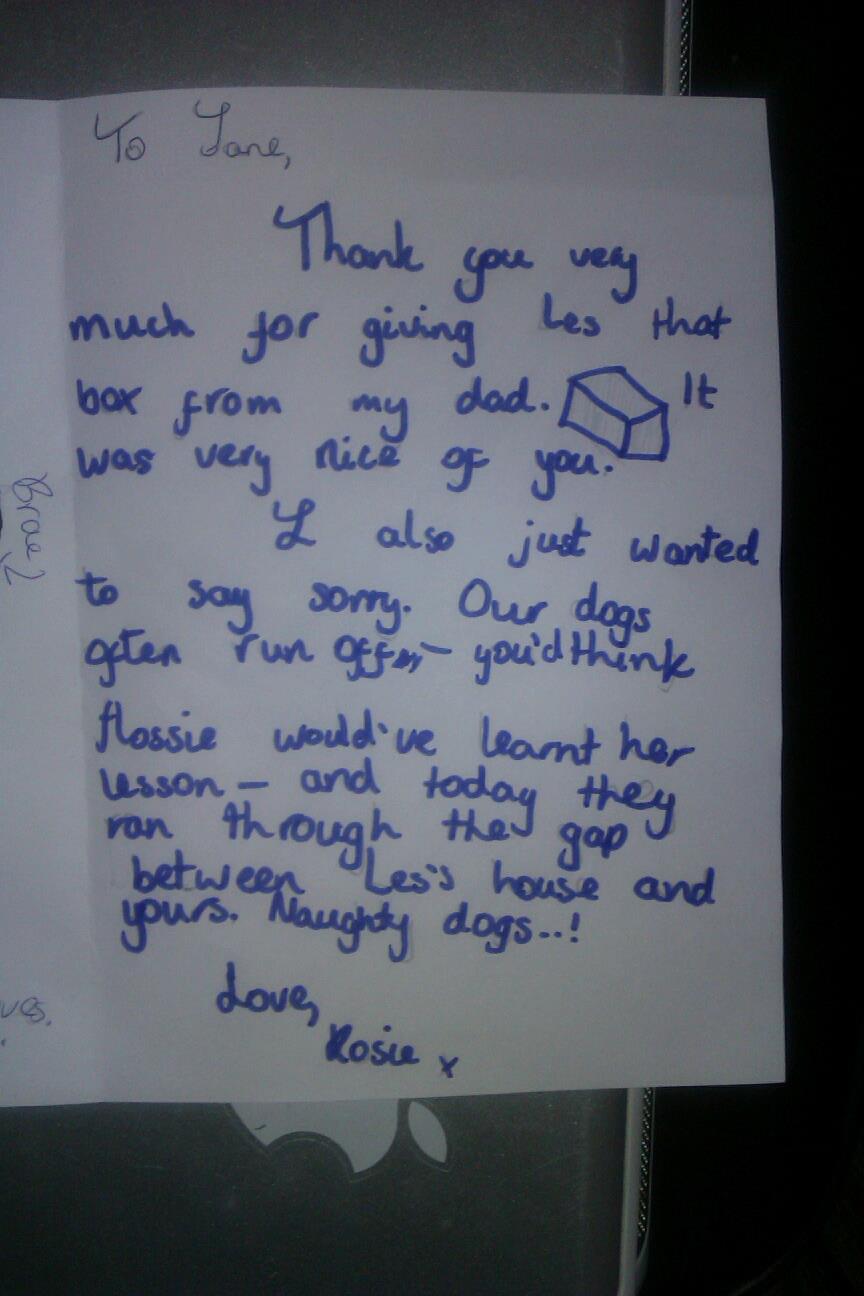 To Jane,
Thank you very
much for giving Les that
box from my dad. It
was very nice of you.
I also just wanted
to say sorry. Our dogs
often run off – you'd think
flossie would've learnt her
lesson – and today they
ran through the gap
between Les's house and
yours. Naughty dogs..!
Love,
Rosie x
Brae